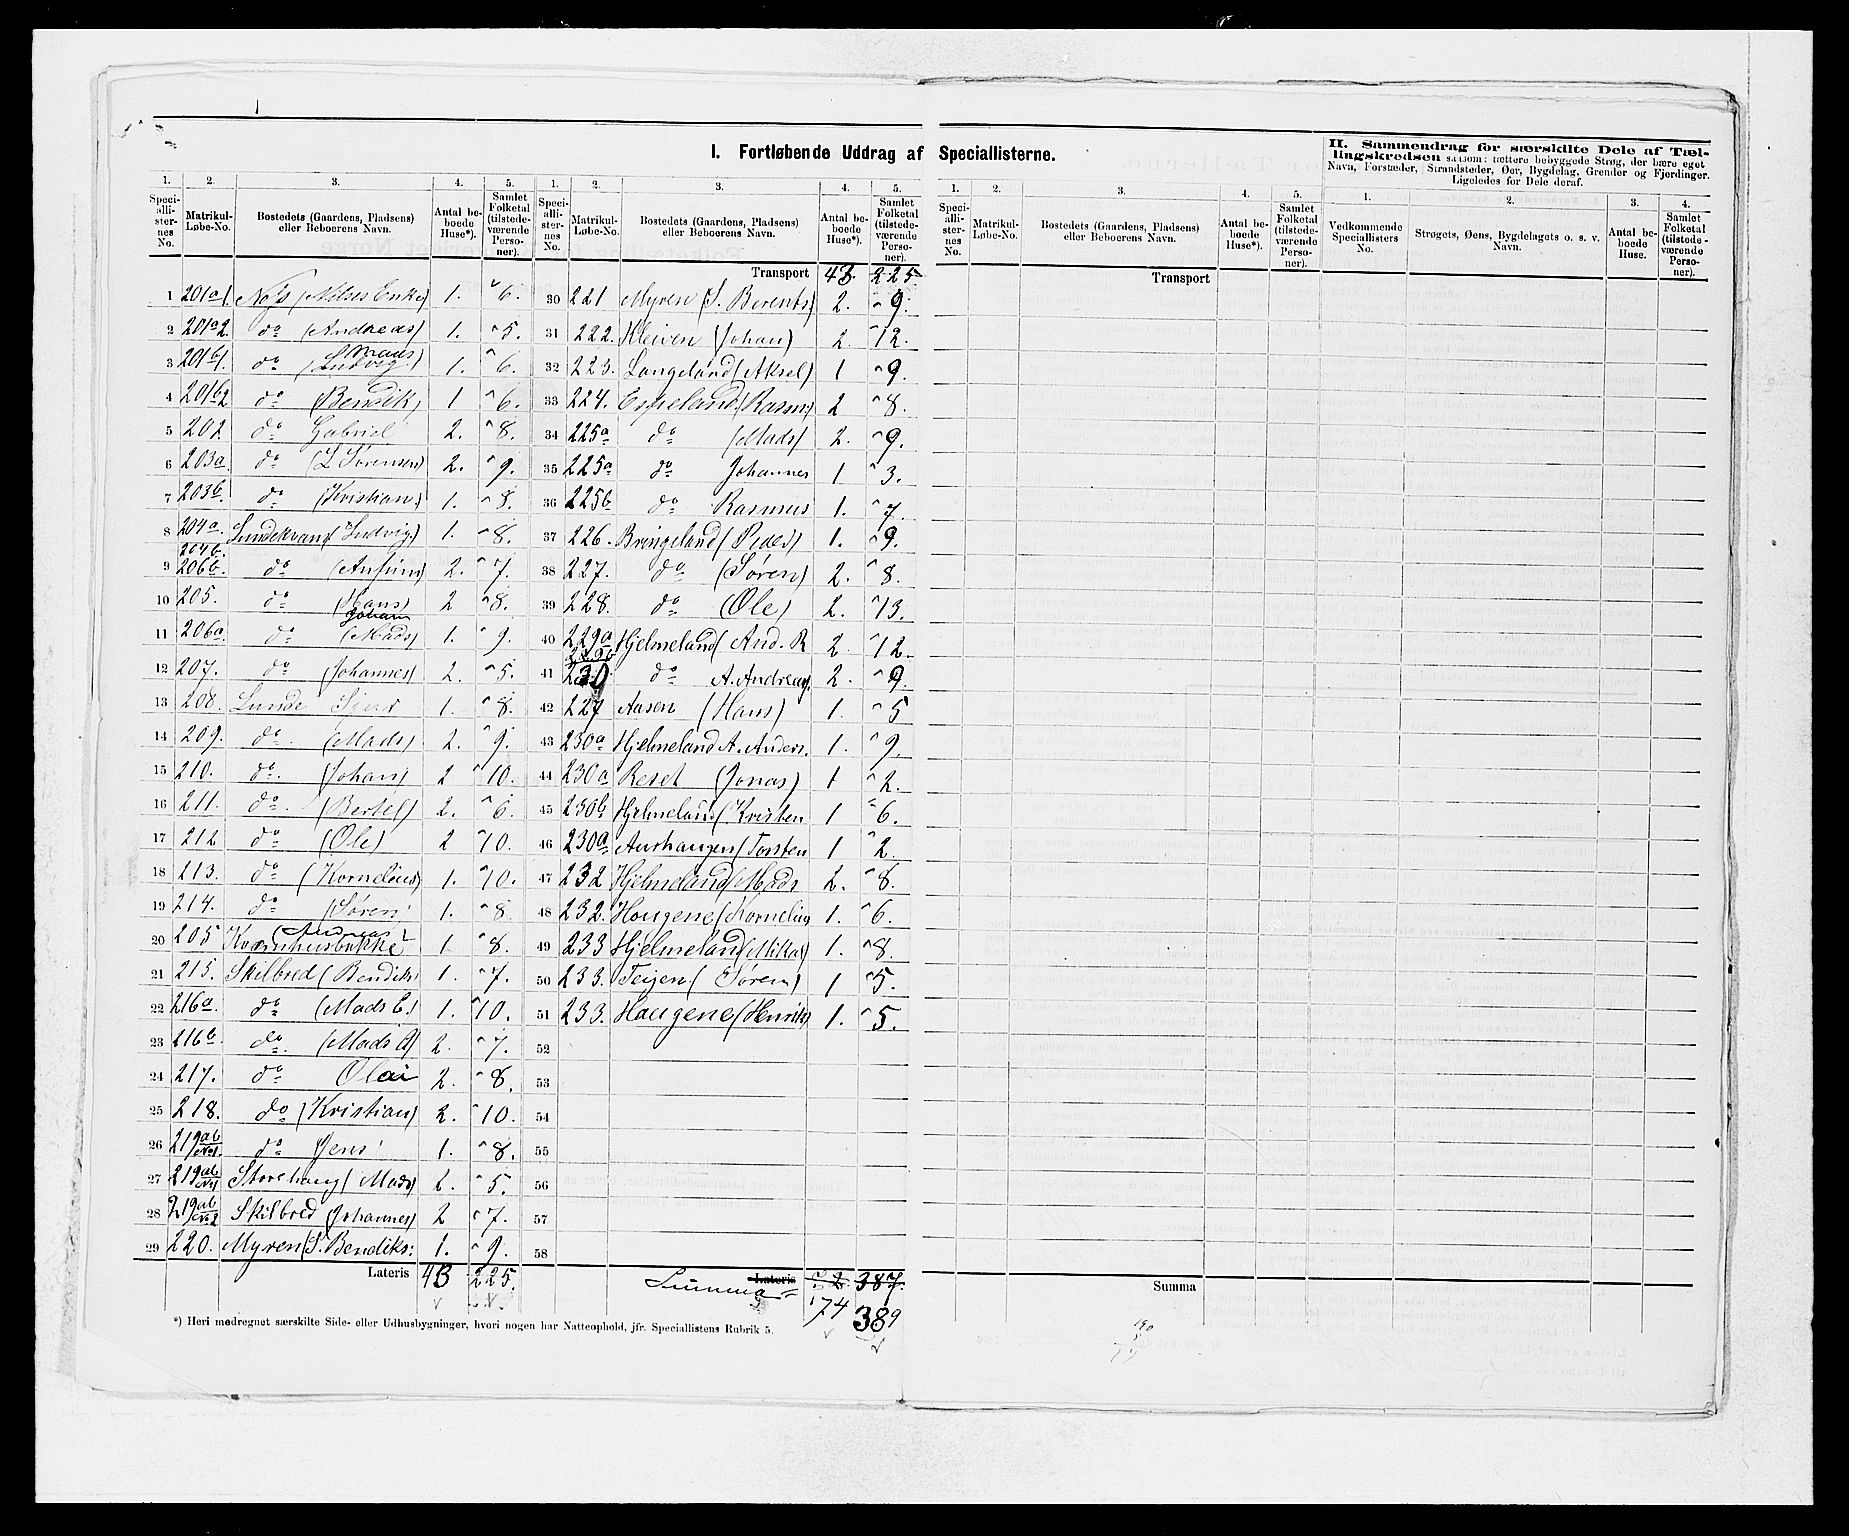 I. Fortløbende Uddrag af Speciallisterne.
II. Sammendrag for særskilte Dele af Tællingskredsen saasom: tættere bebyggede Strøg, der bære eget Navn, Forstæder, Strandsteder, Øer, Bygdelag, Grender og Fjerdinger. Ligeledes for Dele deraf.
1. 2. 3. 4. 5. 1. 2. 3. 4. 5. 1. 2. 3. 4. 5. 1. 2. 3. 4.
Speciallisternes No. Matrikul-Løbe-No. Bostedets (Gaardens, Pladsens) eller Beboerens Navn. Antal beboede Huse*). Samlet Folketal (tilstedeværende Personer).
Speciallisternes No. Matrikul-Løbe-No. Bostedets (Gaardens, Pladsens) eller Beboerens Navn. Antal beboede Huse*). Samlet Folketal (tilstedeværende Personer).
Speciallisternes No. Matrikul-Løbe-No. Bostedets (Gaardens, Pladsens) eller Beboerens Navn. Antal beboede Huse*). Samlet Folketal (tilstedeværende Personer).
Vedkommende Speciallisters No. Strøgets, Øens, Bygdelagets o. s. v. Navn. Antal beboede Huse. Samlet Folketal (tilstedeværende Personer).
1 201a1. 1. 6.
2 201a2. do (Andreas) 1. 5.
3 201b1. do (Ludvig) 1. 6.
4 201b2 do (Bendik) 1 6.
5 202 do Gabriel 2. 8.
6 203a. do (L Sørensen) 2. 9.
7 203b. do (Kristian) 1. 8.
8 204a. (Ludvig) 1. 8.
9 204b. 206b. do 2. 7.
10 205. do (Hans) Johan 2 8.
11 206a. do (Mads) 1. 9.
12 207. do (Johannes) 2. 5.
13 208. Lunde 1. 8.
14 209. do. (Mads) 2. 9.
15 210. do. (Johan) 2 10.
16 211. do. (Bertel) 2. 6.
17 212 do (Ole) 2 10.
18 213. do (Kornelius) 1. 10.
19 214. do (Søren 1. 8
20 205 (Andreas) 1. 8.
21 215. Skilbred (Bendiks 1. 7.
22 216a. do (Mads E.) 1. 10.
23 216b. do. (Mads A) 2. 7.
24 217. do Olai 2. 8.
25 218. do (Kristian) 2. 10.
26 219ab do Jens 1. 8.
27 219ab Storehaug (Mads) 2. 5.
28 219ab Skilbred (Johannes) 2 7.
29 220. Myren (S. Bendiks: 1. 9.
Lateris 43 225.
Transport 43. 225
30 221 Myren (S. Berents) 2. 9.
31 222. Kleiven (Johan) 2. 12.
32 223. Langeland (Aksel) 1 9.
33 224. Espeland (Rasm) 2 8.
34 225a do (Mads) 2. 9.
35 225a do Johannes 1 3.
36 225b do Rasmus 1. 7
37 226. Bringeland (Peder) 1. 9.
38 227. do (Søren) 2. 8.
39 228. do (Ole) 2. 13.
40 229a Hjelmeland (And. R 2. 12.
41 230 do A. Andreas. 2. 9.
42 227 Aasen (Hans) 1. 5
43 230a Hjelmeland A. Anders. 1. 9.
44 230a Reset (Jonas) 1 2.
45 230b Hjelmeland (Kristen 1 6.
46 230a (Torsten 1 2.
47 232 Hjelmeland (Mads 2. 8.
48 232. Haugene (Kornelius 1. 6.
49 233 Hjelmeland (Mikal) 1. 8.
50 233. Teigen (Søren) 1 5.
51 233. Haugene (Henrik) 1. 5.
52
53
54
55
56
57
58
Summa Lateris 72 387.
74 389
Transport
Summa
*) Heri medregnet særskilte Side- eller Udhusbygninger, hvori nogen har Natteophold, jfr. Speciallistens Rubrik 5.